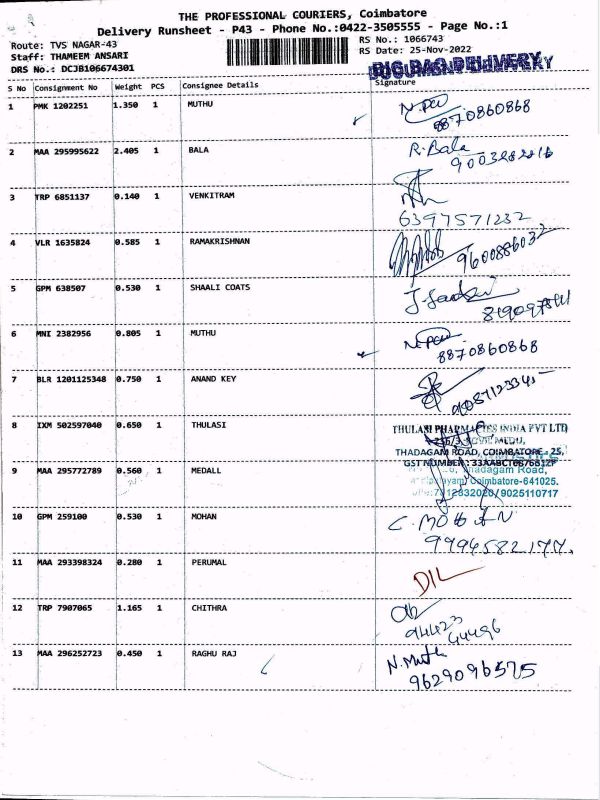 THE PROFESSIONAL COURIERS, Coimbatore
Delivery Runsheet - P43 - Phone No.:0422-3505555 - Page No.:1
Route: TVS NAGAR-43
RS No.: 1066743
Staff: THAMEEM ANSARI
RS Date: 25-Nov-2022
DRS No.: DCJB106674301
DELIVERY
S No Consignment No Weight PCS Consignee Details Signature
1 PMK 1202251 1.350 1 MUTHU
8870860868
2 MAA 295995622 2.405 1 BALA R.Bala
3 TRP 6851137 0.140 1 VENKITRAM
6397571232
4 VLR 1635824 0.585 1 RAMAKRISHNAN
9600886032
5 GPM 638507 0.530 1 SHAALI COATS
6 MNI 2382956 0.805 1 MUTHU
8870860868
7 BLR 1201125348 0.750 1 ANAND KEY
8 IXM 502597040 0.650 1 THULASI
THULASI PHARMACIES INDIA PVT LTD
THADAGAM ROAD, COIMBATORE - 25,
GST NUMBER:
9 MAA 295772789 0.560 1 MEDALL
Thadagam Road,
Coimbatore-641025.
9025110717
10 GPM 259100 0.530 1 MOHAN C. MOHAN
11 MAA 293398324 0.280 1 PERUMAL
12 TRP 7907065 1.165 1 CHITHRA
94423
44496
13 MAA 296252723 0.450 1 RAGHU RAJ N.Muth
9629096575